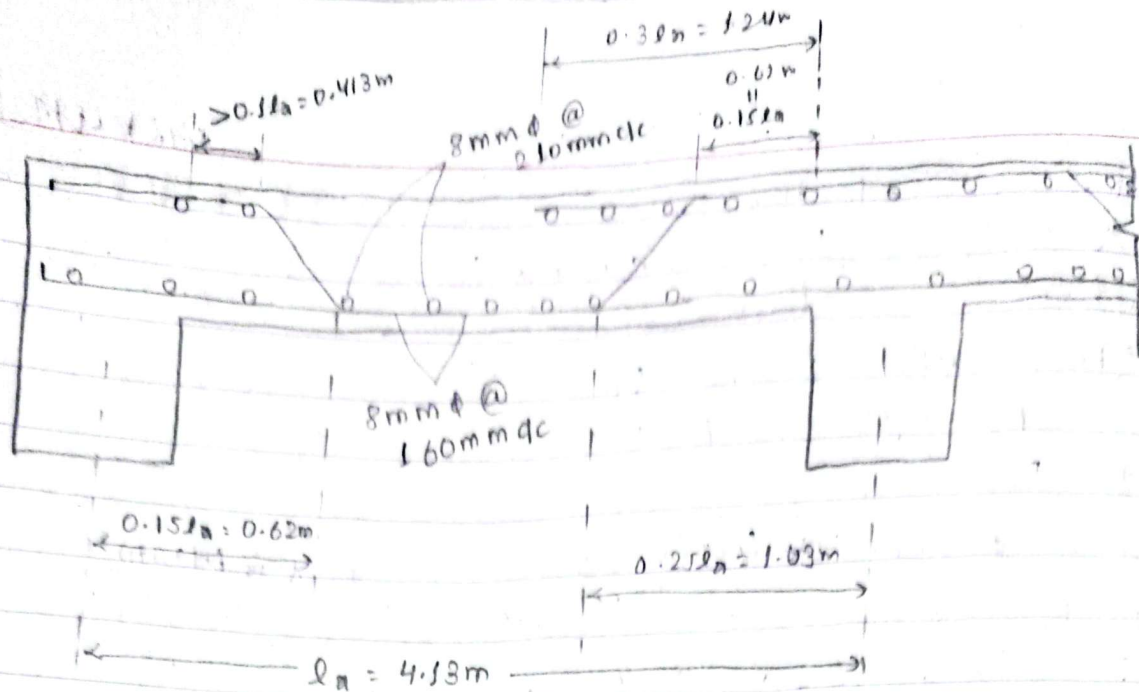 0.3ln = 1.24m
>0.1ln = 0.413m
0.62m
||
0.15ln
8mm ϕ @
210mm c/c
8mm ϕ @
160mm c/c
0.15ln = 0.62m
0.25ln = 1.03m
ln = 4.13m